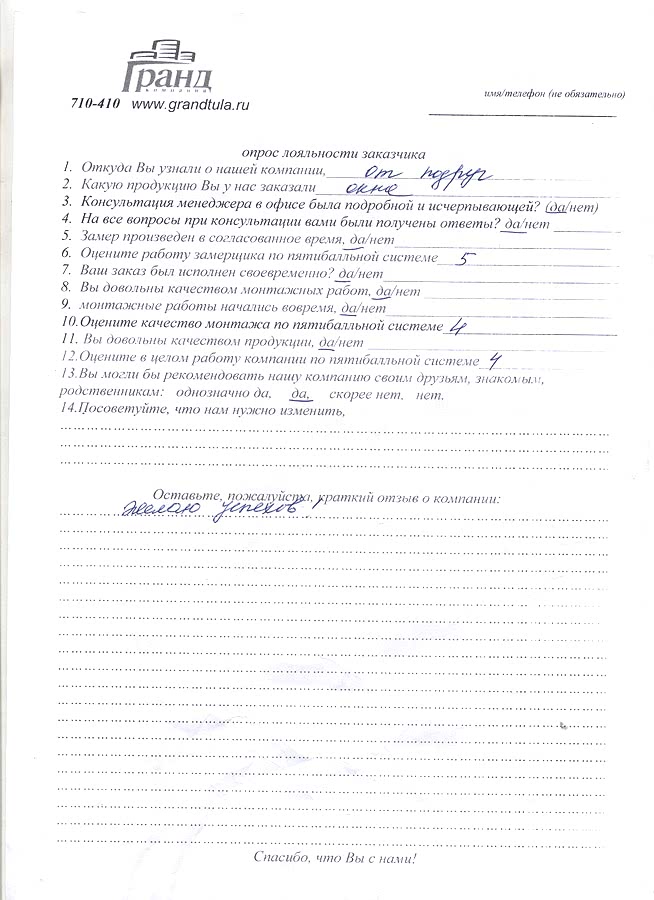 Гранд
компания
710-410 www.grandtula.ru
имя/телефон (не обязательно)
опрос лояльности заказчика
1. Откуда Вы узнали о нашей компании, от подруг
2. Какую продукцию Вы у нас заказали окна
3. Консультация менеджера в офисе была подробной и исчерпывающей? (да/нет)
4. На все вопросы при консультации вами были получены ответы? да/нет
5. Замер произведен в согласованное время, да/нет
6. Оцените работу замерщика по пятибалльной системе 5
7. Ваш заказ был исполнен своевременно? да/нет
8. Вы довольны качеством монтажных работ, да/нет
9. монтажные работы начались вовремя, да/нет
10.Оцените качество монтажа по пятибалльной системе 4
11. Вы довольны качеством продукции, да/нет
12.Оцените в целом работу компании по пятибалльной системе 4
13.Вы могли бы рекомендовать нашу компанию своим друзьям, знакомым,
родственникам: однозначно да, да, скорее нет, нет.
14.Посоветуйте, что нам нужно изменить,
Оставьте, пожалуйста, краткий отзыв о компании:
Желаю успехов!
Спасибо, что Вы с нами!